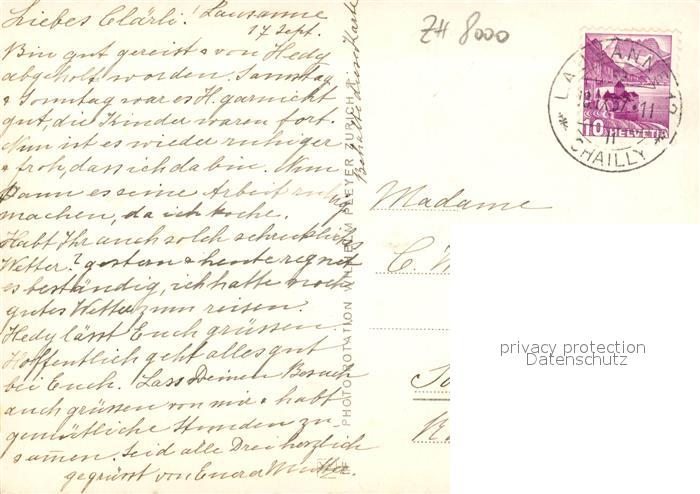 Liebes Clärli! Lausanne
17 Sept.
Bin gut gereist & von Hedy
abgeholt worden. Samstag
& Sonntag war es H. gar nicht
gut, die Kinder waren fort.
Nun ist es wieder ruhiger
& froh, dass ich da bin. Nun
kann es seine Arbeit ruhig
machen, da ich koche.
Habt Ihr auch solch schreckliches
Wetter? gestern & heute regnet
es beständig, ich hatte noch
gutes Wetter zum reisen.
Hedy lässt Euch grüssen.
Hoffentlich geht alles gut
bei Euch. Lass Deinen Besuch
auch grüssen von mir & habt
gemütliche Stunden zu-
samen. Seid alle Drei herzlich
gegrüsst von Eurer Mutter.
Behalte diese Karte
PHOTO-ROTATION WILHELM PLEYER ZÜRICH 2
ZH 8000
LAUSANNE 12
18.IX.37-11
11
* CHAILLY *
10 HELVETIA
Madame
C.
privacy protection
Datenschutz